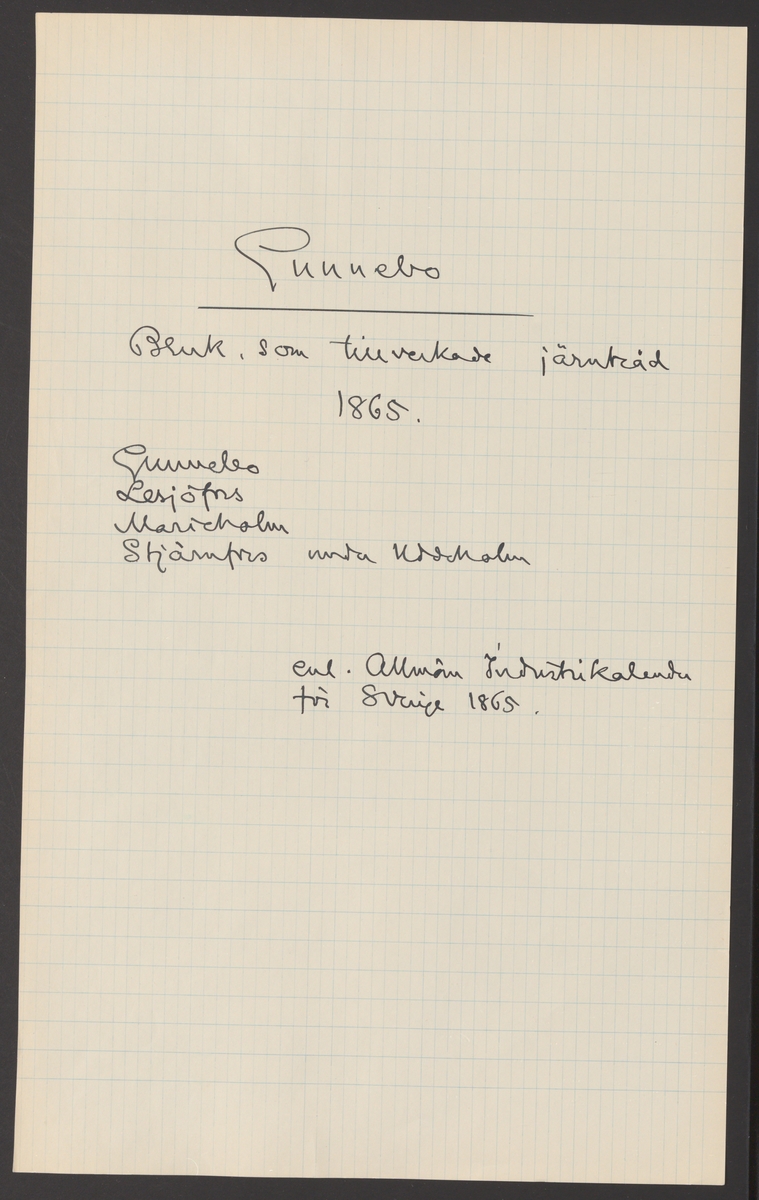 Gunnebo
Bruk, som tillverkade järntråd
1865.
Gunnebo
Lesjöfors
Marieholm
Stjärnfors under Uddeholm
enl. Allmän Industrikalender
för Sverige 1865.